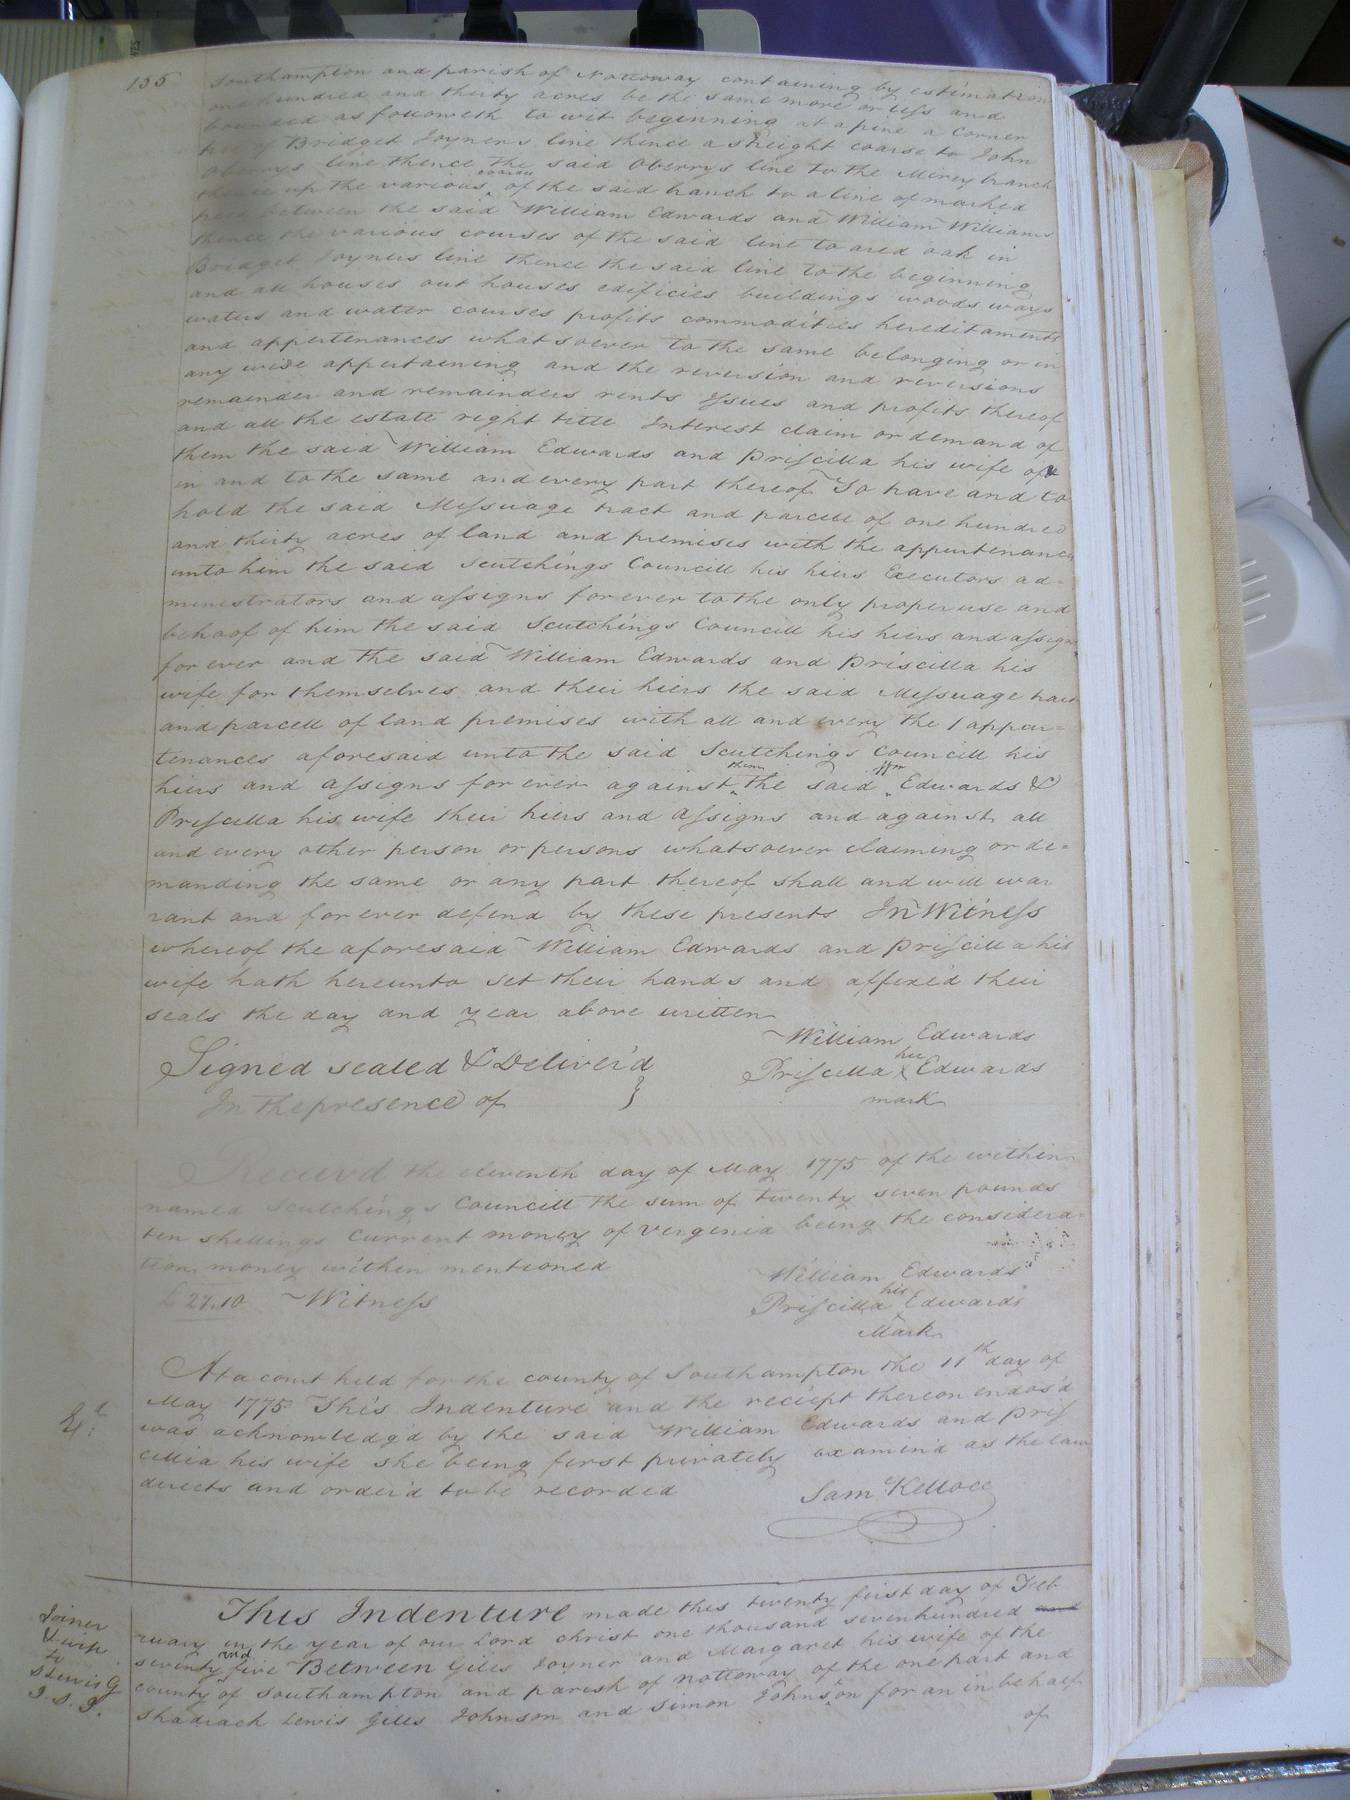 155
Southampton and parish of Nottoway containing by estimation
one hundred and thirty acres be the same more or less and
bounded as followeth to wit beginning at a pine a Corner
tree of Bridget Joyners line thence a streight coarse to John
Oberrys line thence the said Oberrys line to the Mirey branch
thence up the various courses of the said branch to a line of marked
trees between the said William Edwards and William Williams
thence the various courses of the said line to a red oak in
Bridget Joyners line thence the said line to the beginning
and all houses out houses edificies buildings woods ways
waters and water courses profits commodities hereditaments
and appurtenances whatsoever to the same belonging or in
any wise appertaining and the reversion and reversions
remainder and remainders rents Issues and profits thereof
and all the estate right title Interest claim or demand of
them the said William Edwards and Priscilla his wife of
in and to the same and every part thereof To have and to
hold the said Messuage tract and parcell of one hundred
and thirty acres of land and premises with the appurtenances
unto him the said Scutchings Councill his hiers Executors ad=
ministrators and assigns for ever to the only proper use and
behoof of him the said Scutchings Councill his hiers and assigns
for ever and the said William Edwards and Priscilla his
wife for themselves and their hiers the said Messuage tract
and parcell of land premises with all and every the appur=
tenances aforesaid unto the said Scutchings Councill his
hiers and assigns for ever against them the said Wm Edwards &
Priscilla his wife their hiers and assigns and against all
and every other person or persons whatsoever claiming or de=
manding the same or any part thereof shall and will war
rant and for ever defend by these presents In Witness
whereof the aforesaid William Edwards and Priscilla his
wife hath hereunto set their hands and affixed their
seals the day and year above written
William Edwards
Signed sealed & Deliver'd
In the presence of
Priscilla her X Edwards
mark
Receivd the eleventh day of May 1775 of the within
named Scutchings Councill the sum of twenty seven pounds
ten shillings Current money of Verginia being the considera=
tion money within mentioned
William Edwards
£27.10 Witness
Priscilla his X Edwards
Mark
At a court held for the county of Southampton the 11th day of
May 1775 This Indenture and the reciept thereon endos'd
was acknowledg'd by the said William Edwards and Pris
cillia his wife she being first privately examin'd as the law
directs and order'd to be recorded
Sam Kelloce
Ed:
This Indenture made this twenty first day of Feb
ruary in the year of our Lord christ one thousand sevenhundred and
seventy five Between Giles Joyner and Margaret his wife of the
county of Southampton and parish of Nottoway of the one part and
Shadrack Lewis Giles Johnson and Simon Johnson for an in behalf
of
Joiner
& wife
to
S Lewis G
J. S. J.